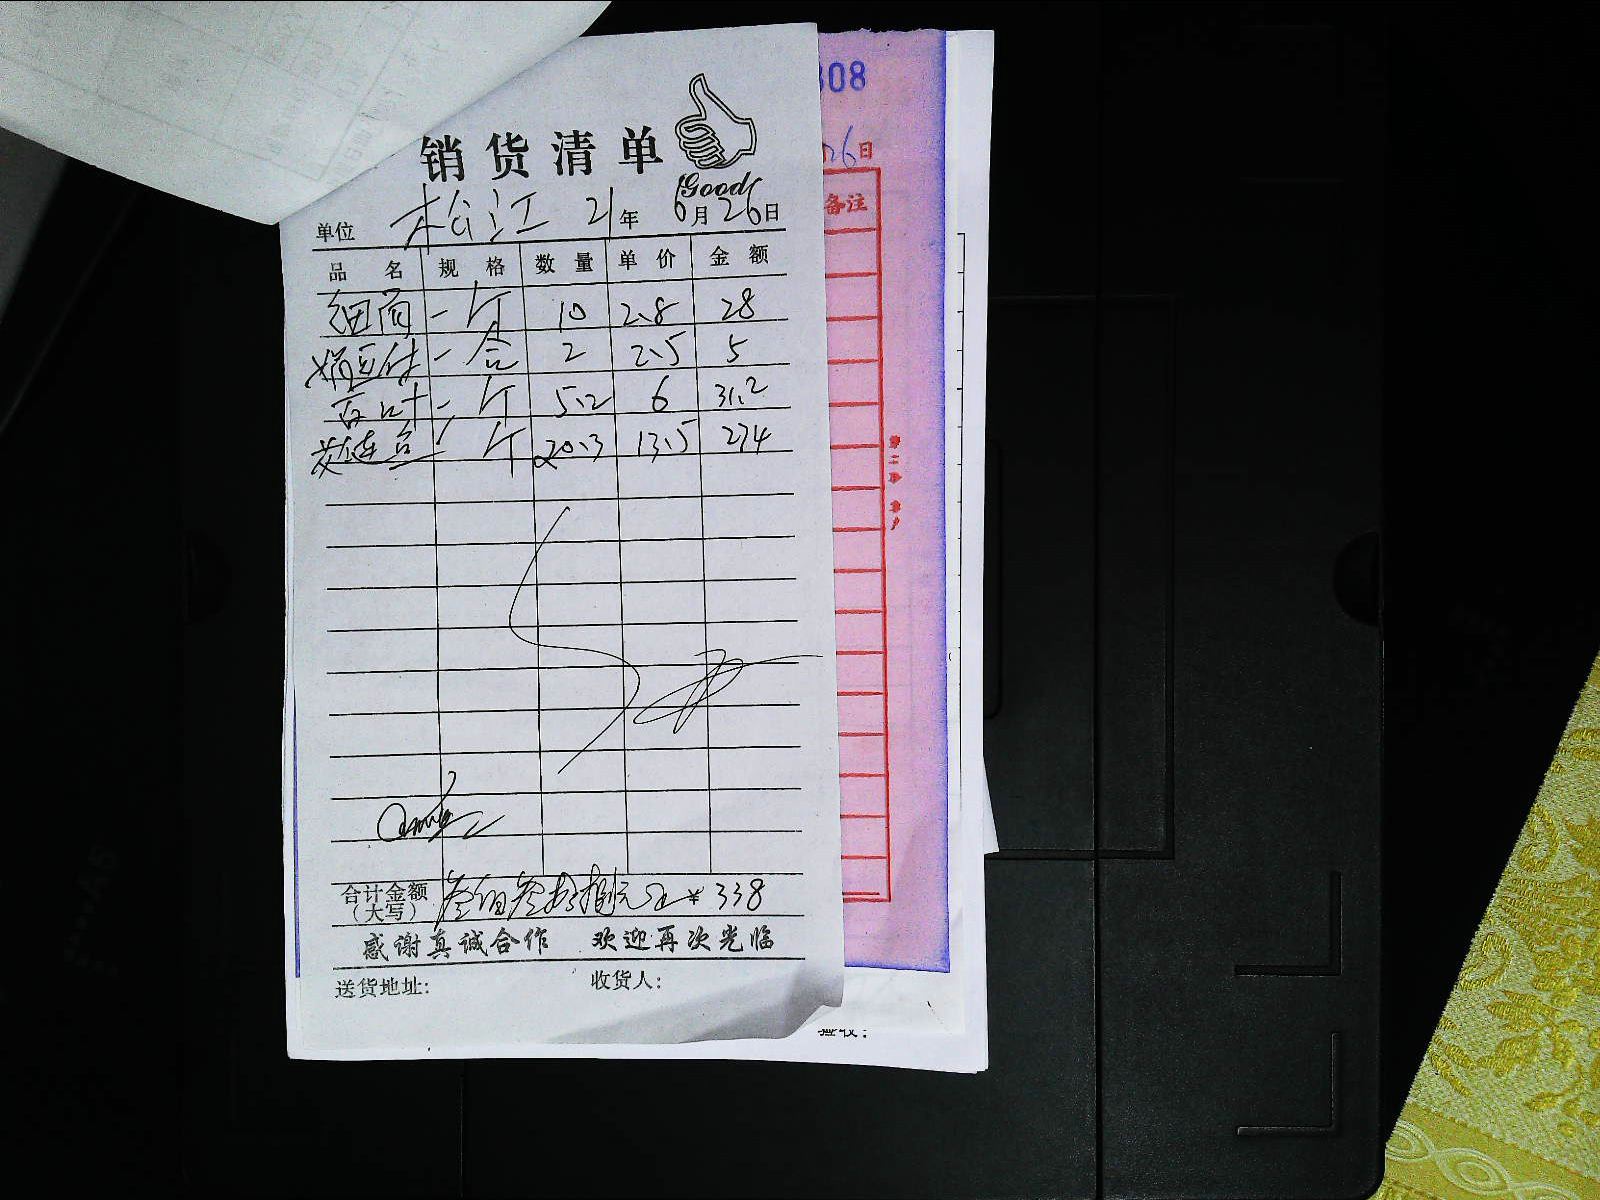 308
26日
备注
销货清单
Good
单位 松江 21年 6月26日
品名 规格 数量 单价 金额
细面 一斤 10 2.8 28
一合 2 2.5 5
百叶 一斤 5.2 6 31.2
斤 20.3 13.5 274
合计金额(大写) 叁佰叁拾捌元正 ¥ 338
感谢真诚合作 欢迎再次光临
送货地址: 收货人:
验收: